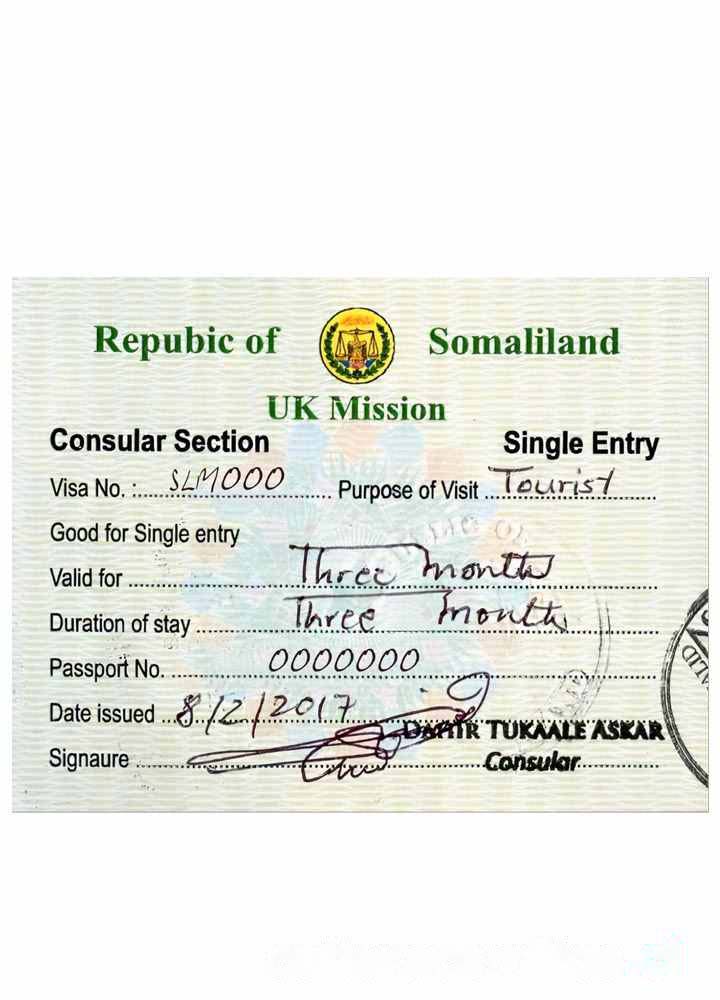 Repubic of Somaliland
UK Mission
Consular Section Single Entry
Visa No. :..... SLM000 ..... Purpose of Visit ... Tourist .....
Good for Single entry
Valid for ..... Three months
Duration of stay ..... Three months
Passport No. ..... 0000000
Date issued ... 8/2/2017
DAHIR TUKAALE ASKAR
Signaure ..... Consular